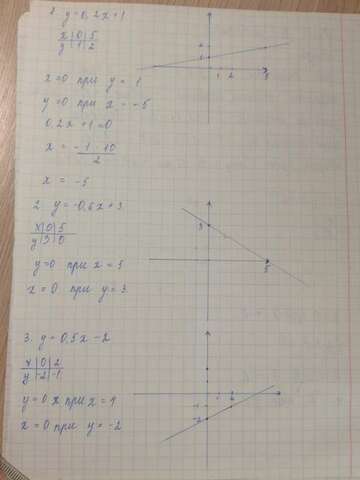 1. y=0,2x+1
x|0|5
y|1|2
x=0 при y = 1
y=0 при x = -5
0,2x+1=0
x = -1·10
2
x = -5
2 1
1 2 5
2. y=-0,6x+3
x|0|5
y|3|0
y=0 при x=5
x=0 при y=3
3
5
3. y=0,5x-2
x|0|2
y|-2|-1
y=0 x при x=4
x=0 при y=-2
1 2
-1
-2